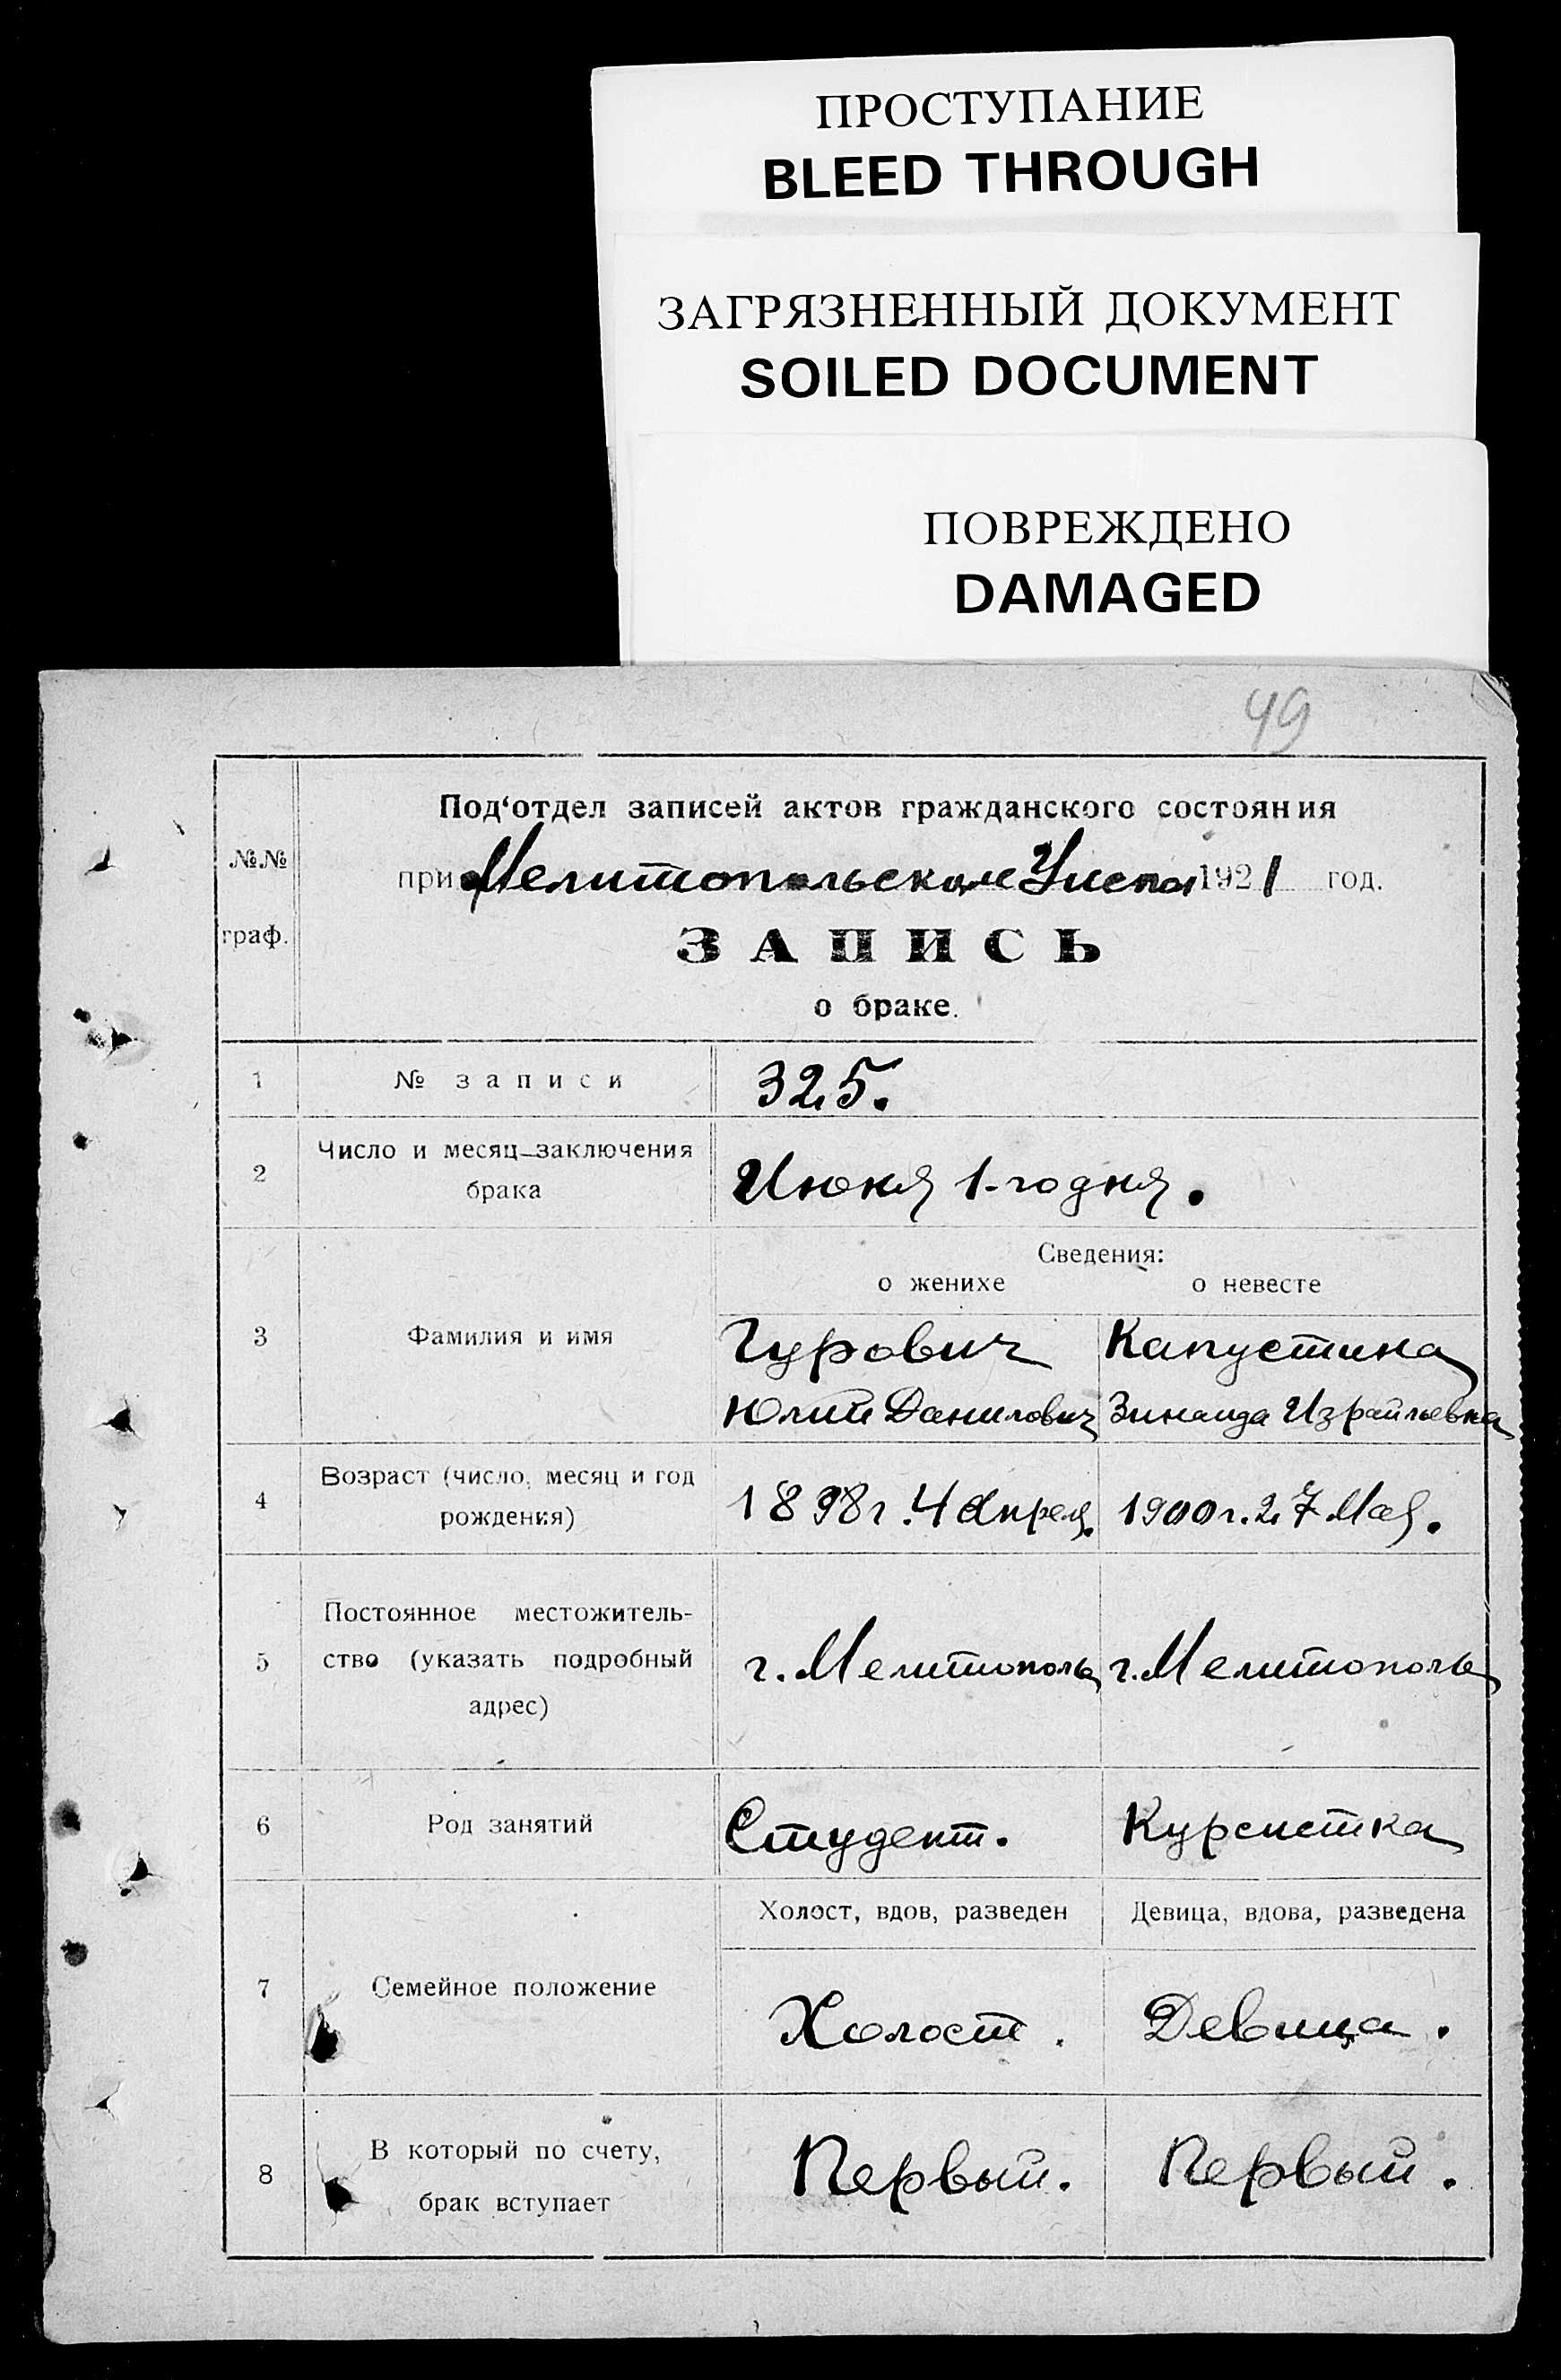 ПРОСТУПАНИЕ
BLEED THROUGH
ЗАГРЯЗНЕННЫЙ ДОКУМЕНТ
SOILED DOCUMENT
ПОВРЕЖДЕНО
DAMAGED
49
№№
граф.
Под‘отдел записей актов гражданского состояния
при Мелитопольском 1921 год.
ЗАПИСЬ
о браке.
1 № записи 325.
2 Число и месяц заключения
брака
Июня 1-го дня.
Сведения:
о женихе о невесте
3 Фамилия и имя
Гурович Капустина
Юлий Данилович Зинаида Израильевна
4 Возраст (число, месяц и год
рождения)
1898 г. 4 Апреля. 1900 г. 27 Мая.
5 Постоянное местожитель-
ство (указать подробный
адрес)
г. Мелитополь г. Мелитополь
6 Род занятий Студент. Курсистка
Холост, вдов, разведен Девица, вдова, разведена
7 Семейное положение
Холост. Девица.
8 В который по счету,
брак вступает
Первый. Первый.